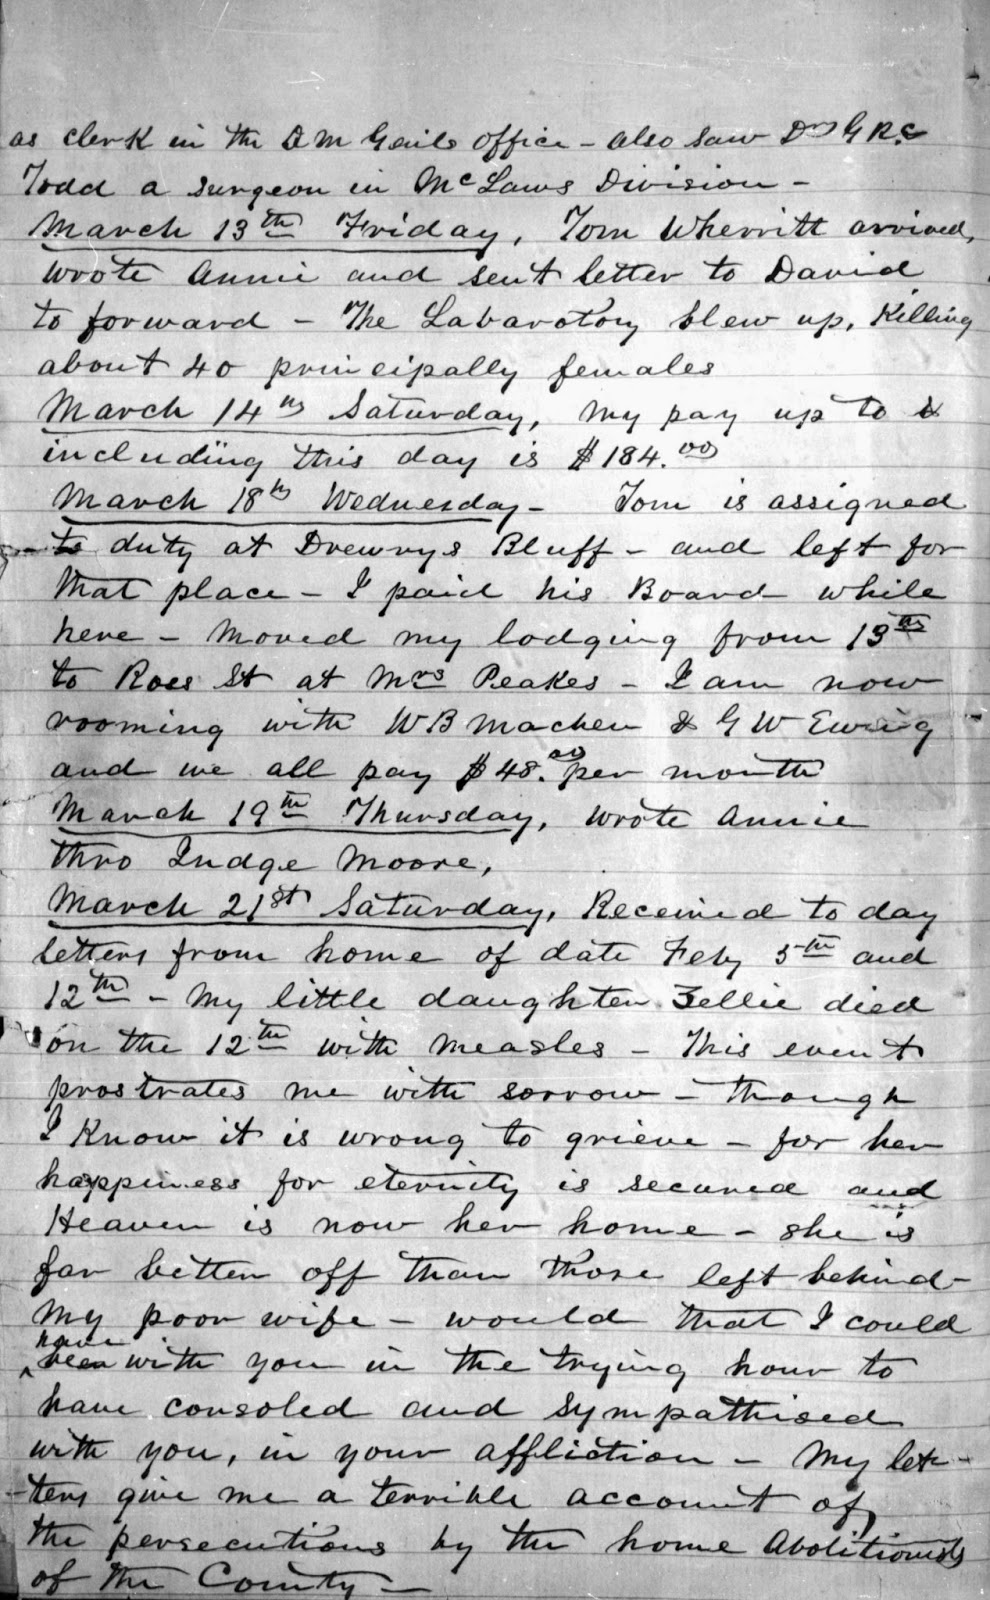 as clerk in the Q M Genls office - also saw Dr G R C
Todd a surgeon in McLaws Division -
March 13th Friday, Tom Wherritt arrived,
wrote Annie and sent letter to David
to forward - The Labarotory blew up, Killing
about 40 principally females
March 14th Saturday, My pay up to &
including this day is $184.00
March 18th Wednesday - Tom is assigned
to duty at Drewrys Bluff - and left for
that place - I paid his Board while
here - Moved my lodging from 13th
to Ross St at Mrs Peakes - I am now
rooming with W B Machen & G W Ewing
and we all pay $48.00 per month
March 19th Thursday, wrote Annie
thro Judge Moore,
March 21st Saturday, Received to day
letters from home of date Feby 5th and
12th - My little daughter Zellie died
on the 12th with measles - This event
prostrates me with sorrow - though
I Know it is wrong to grieve - for her
happiness for eternity is secured and
Heaven is now her home - she is
far better off than those left behind -
My poor wife - would that I could
have been with you in the trying hour to
have consoled and sympathised
with you, in your affliction - My let-
-ters give me a terrible account of,
the persecutions by the home Abolitionists
of the County -